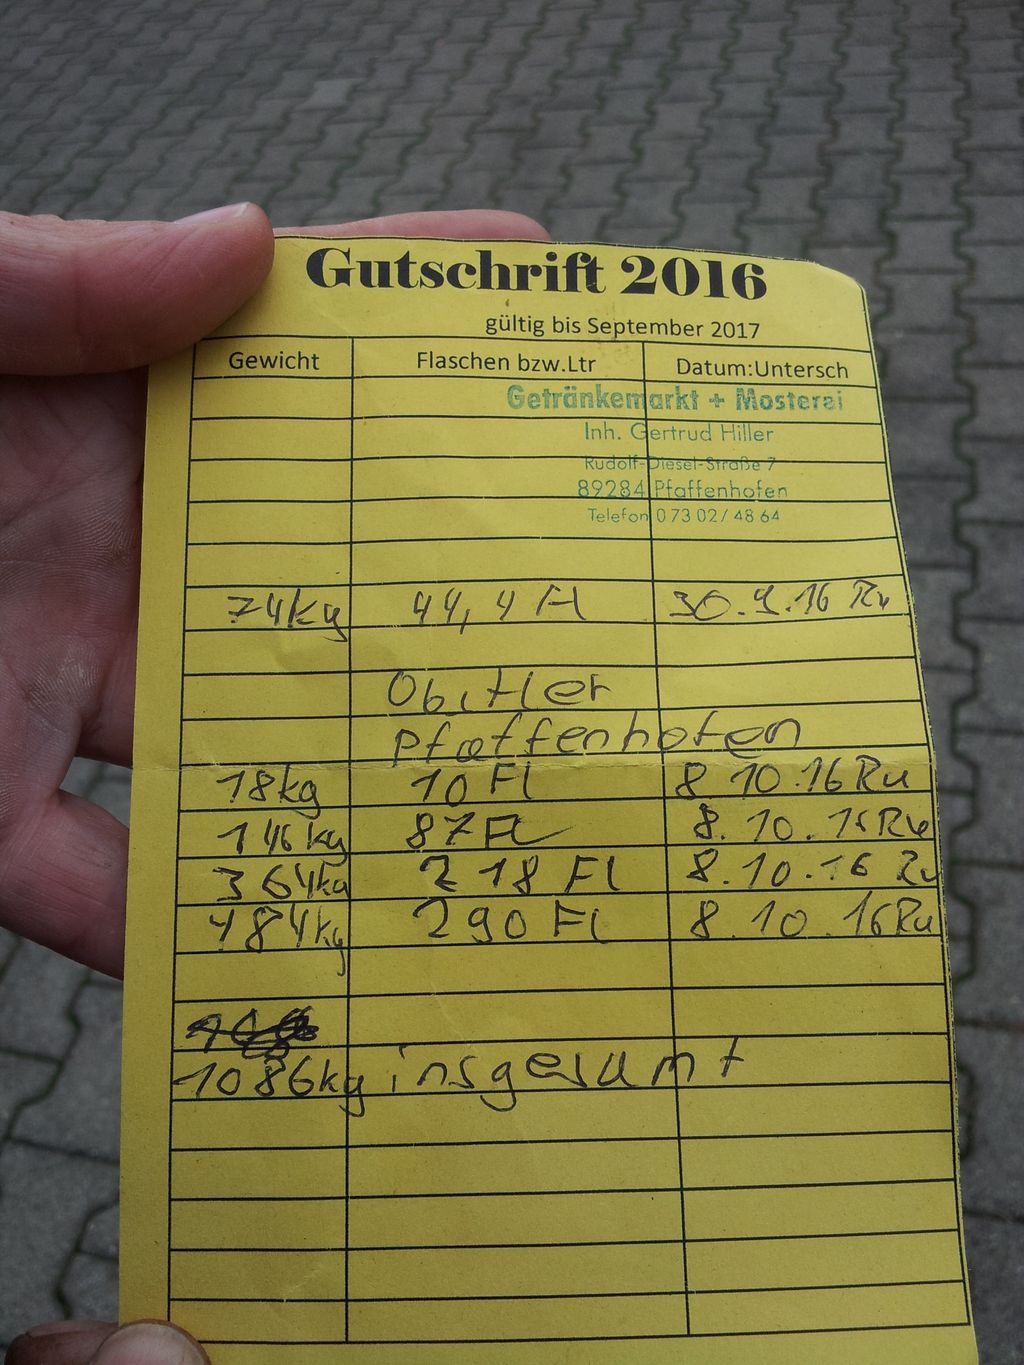 Gutschrift 2016
gültig bis September 2017
Gewicht Flaschen bzw.Ltr Datum:Untersch
Getränkemarkt + Mosterei
Inh. Gertrud Hiller
Rudolf-Diesel-Straße 7
89284 Pfaffenhofen
Telefon 0 73 02 / 48 64
74kg 44,4 Fl 30.9.16 Ru
Obstler
Pfaffenhofen
18kg 10 Fl 8.10.16 Ru
146kg 87 Fl 8.10.16 Ru
364kg 218 Fl 8.10.16 Ru
484kg 290 Fl 8.10.16 Ru
1086kg insgesamt